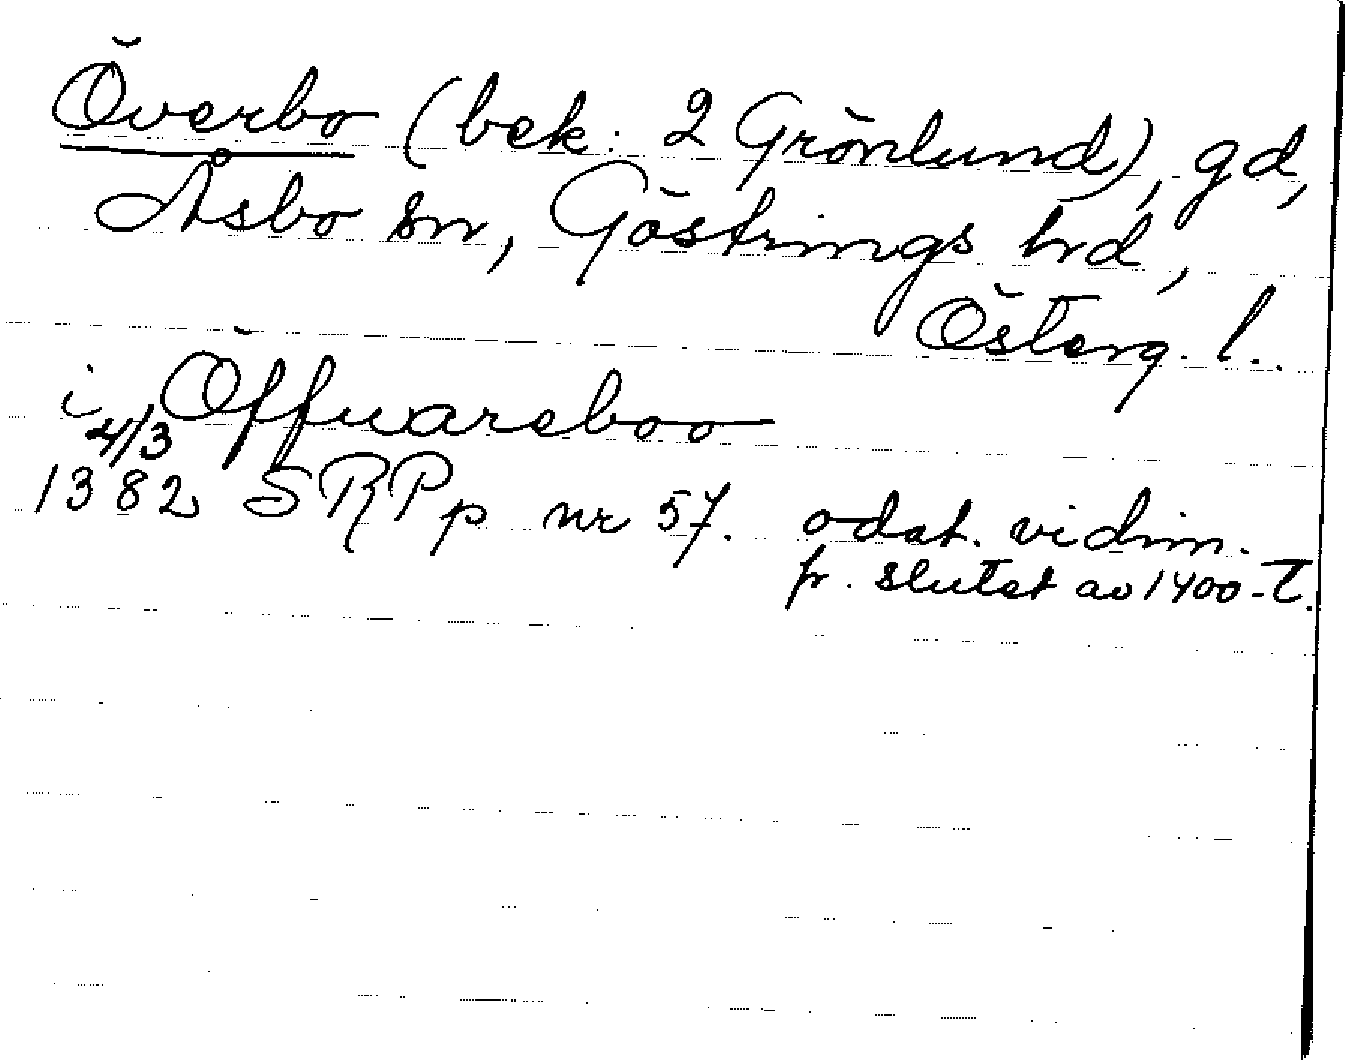 Överbo (bek. 2 Grönlund), gd,
Åsbo sn, Göstrings hd,
Österg. l.
i Öffuareboo
4/3
1382 SRPp nr 57. odat. vidim.
fr. slutet av 1400-t.